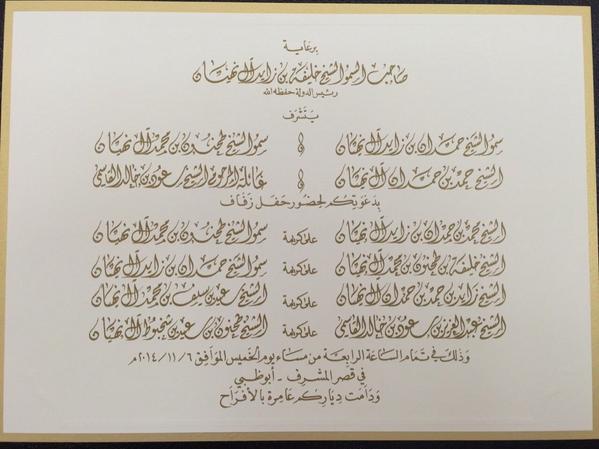 برعاية
صاحب السمو الشيخ خليفة بن زايد آل نهيان
رئيس الدولة حفظه الله
يتشرف
سمو الشيخ حمدان بن زايد آل نهيان و سمو الشيخ طحنون بن محمد آل نهيان
الشيخ حمد بن حمدان آل نهيان و عائلة المرحوم الشيخ سعود بن خالد القاسمي
بدعوتكم لحضور حفل زفاف
الشيخ محمد بن حمدان بن زايد آل نهيان على كريمة سمو الشيخ طحنون بن محمد آل نهيان
الشيخ خليفة بن طحنون بن محمد آل نهيان على كريمة سمو الشيخ حمدان بن زايد آل نهيان
الشيخ زايد بن حمد بن حمدان آل نهيان على كريمة الشيخ سعيد بن سيف بن محمد آل نهيان
الشيخ عبدالعزيز بن سعود بن خالد القاسمي على كريمة الشيخ طحنون بن سعيد بن شخبوط آل نهيان
وذلك في تمام الساعة الرابعة من مساء يوم الخميس الموافق ٢٠١٤/١١/٦م
في قصر المشرف - أبوظبي
ودامت دياركم عامرة بالأفراح